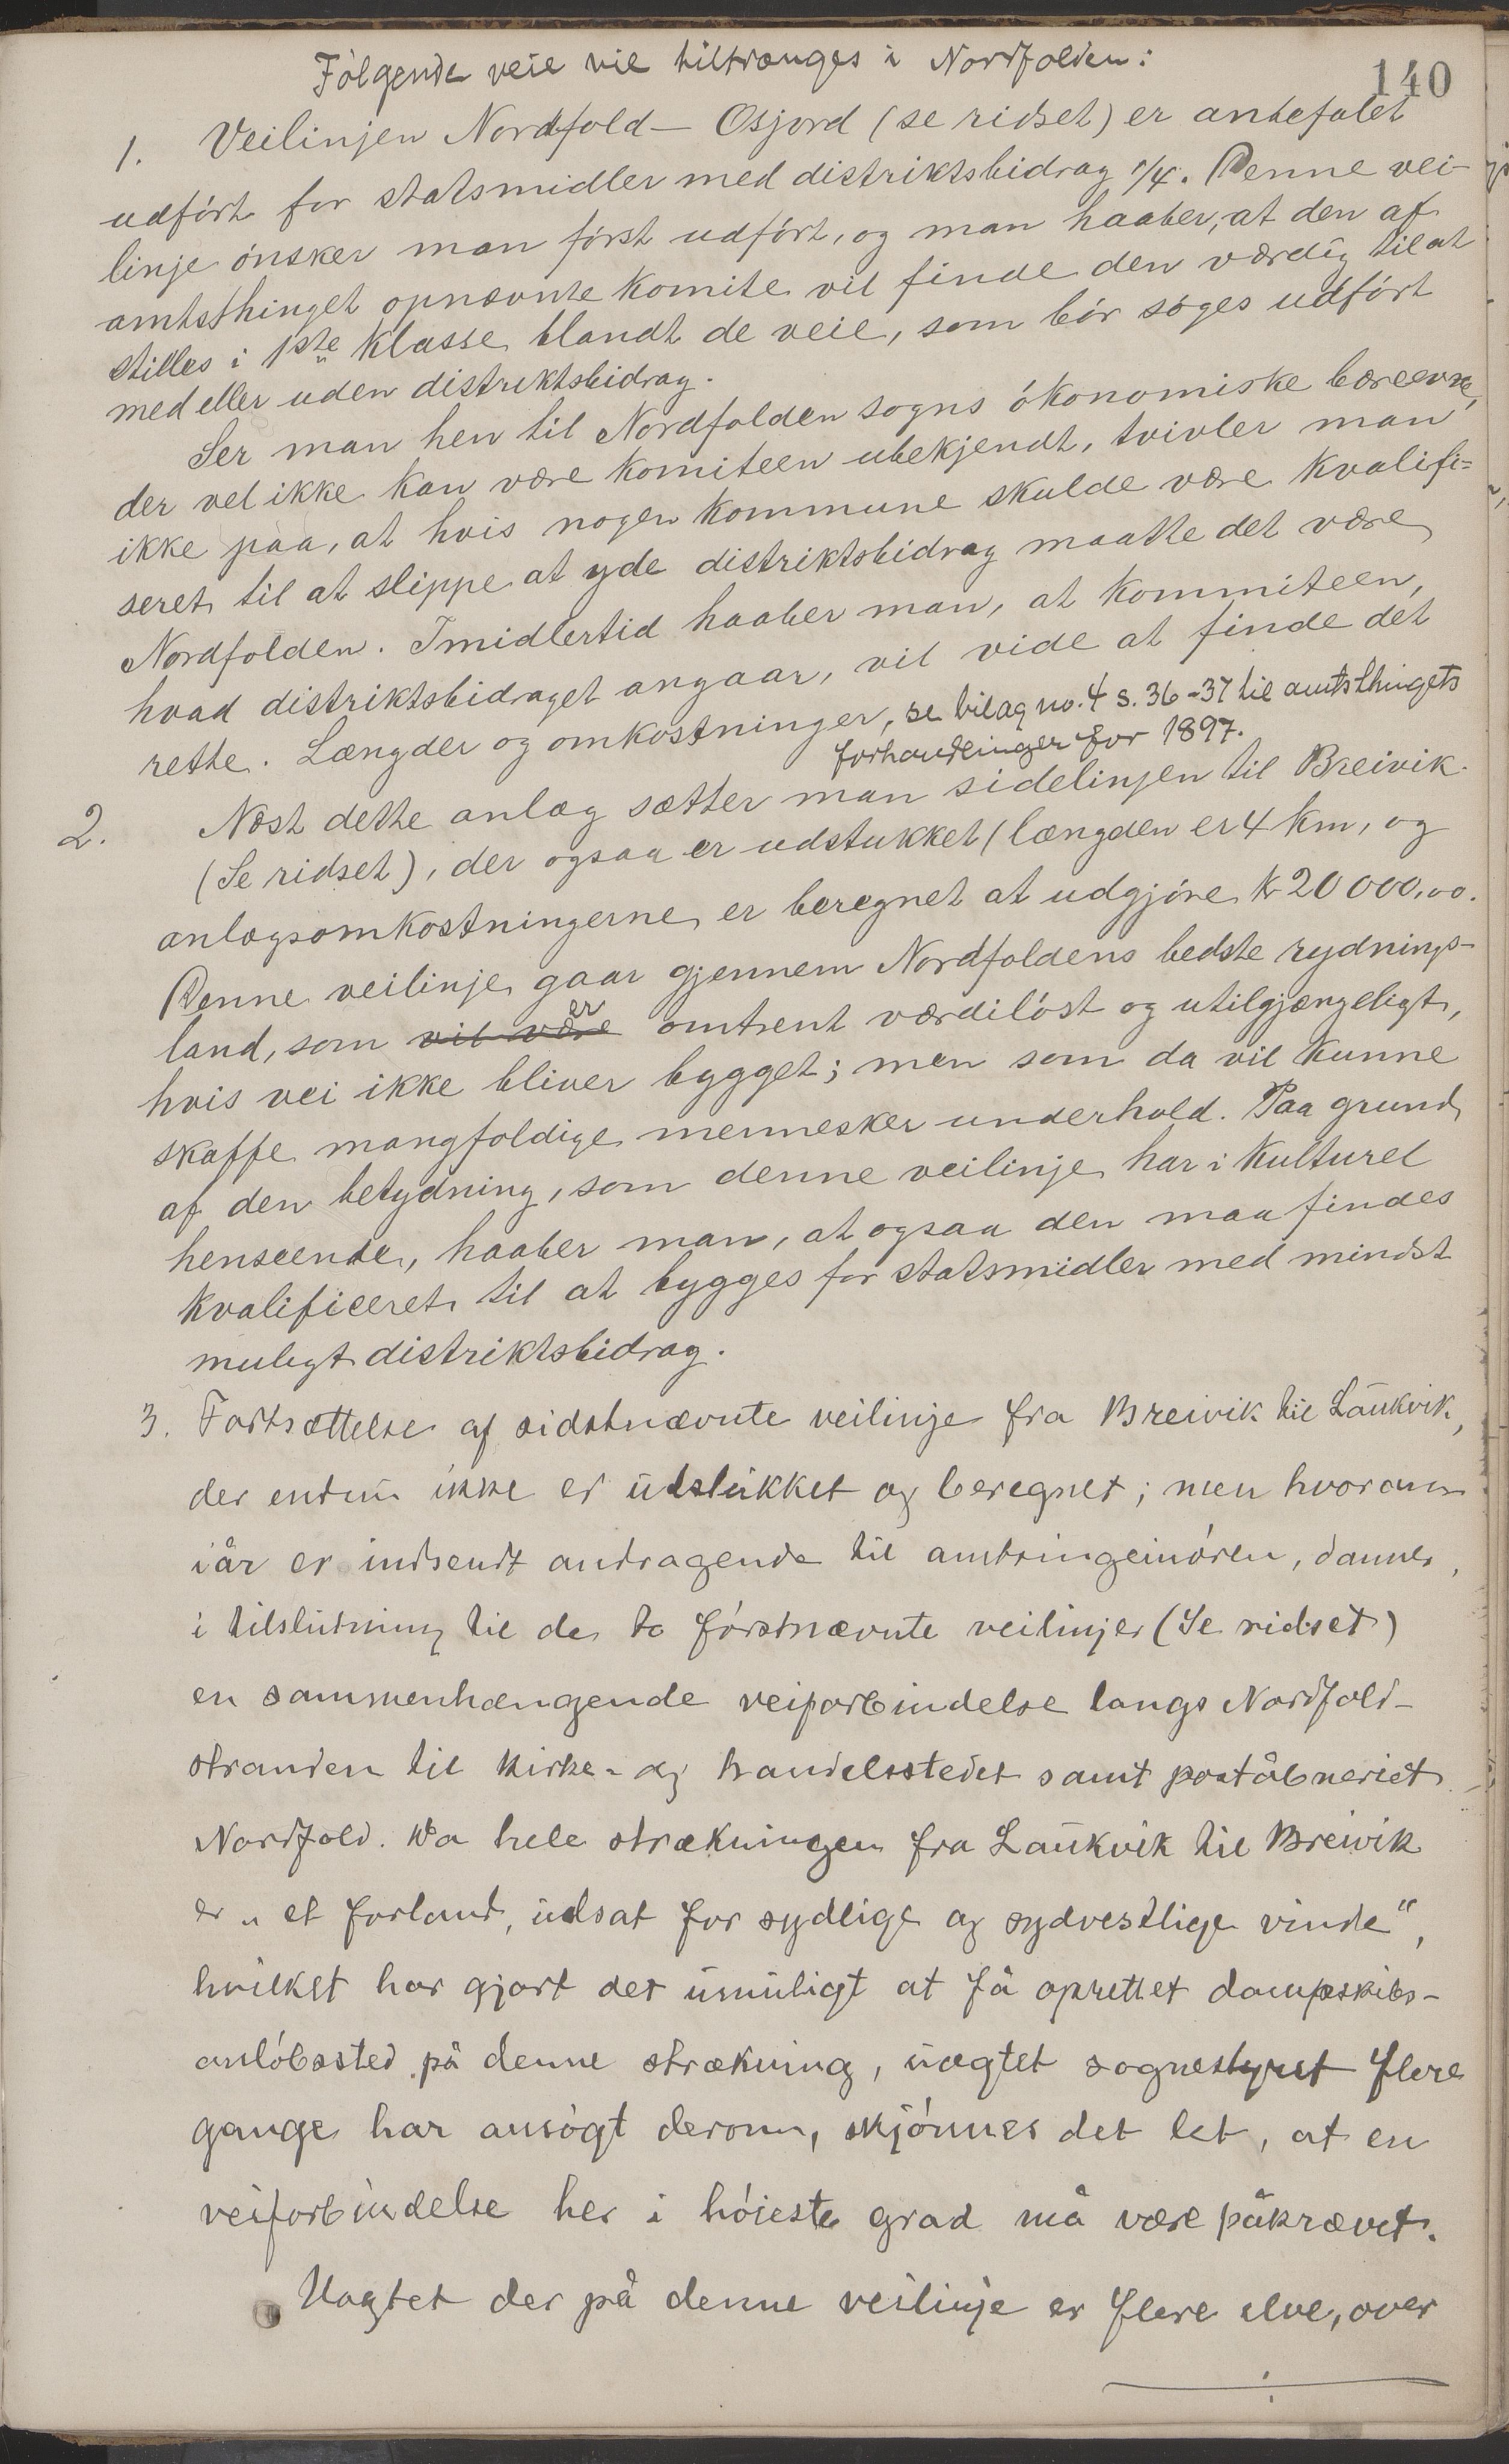 Følgende veie vil tiltrænges i Nordfolden:
140
1. Veilinjen Nordfold – Osjord (se ridset) er anbefalet
udført for statsmidler med distriktsbidrag 1/4. Denne vei-
linje ønsker man først udført, og man haaber, at den af
amtsthinget opnævnte komite vil finde den værdig til at
stilles i 1ste klasse blandt de veie, som bør søges udført
med eller uden distriktsbidrag.
Ser man hen til Nordfolden sogns økonomiske bæreevne,
der vel ikke kan være komiteen ubekjendt, tvivler man
ikke paa, at hvis nogen kommune skulde være kvalifi=
seret til at slippe at yde distriktsbidrag maatte det være
Nordfolden. Imidlertid haaber man, at kommiteen,
hvad distriktsbidraget angaar, vil vide at finde det
rette. Længder og omkostninger, se bilag no. 4 s. 36-37 til amtsthingets
forhandlinger for 1897.
2. Næst dette anlæg sætter man sidelinjen til Breivik.
(Se ridset), der ogsaa er udstukket (længden er 4 km, og
anlægsomkostningerne er beregnet at udgjøre kr 20 000,00.
Denne veilinje gaar gjennem Nordfoldens bedste rydnings-
land, som vil være er omtrent værdiløst og utilgjængeligt,
hvis vei ikke bliver bygget; men som da vil kunne
skaffe mangfoldige mennesker underhold. Paa grund
af den betydning, som denne veilinje har i kulturel
henseende, haaber man, at ogsaa den maa findes
kvalificeret til at bygges for statsmidler med mindst
muligt distriktsbidrag.
3. Fortsættelse af sidstnævnte veilinje fra Breivik til Laukvik,
der endnu ikke er udstukket og beregnet; men hvorom
iår er indsendt andragende til amtsingeniøren, danner,
i tilslutning til de to førstnævnte veilinjer (Se ridset)
en sammenhængende veiforbindelse langs Nordfold-
stranden til kirke- og handelsstedet samt poståbneriet
Nordfold. Da hele strækningen fra Laukvik til Breivik
er „et forland, udsat for sydlige og sydvestlige vinde“,
hvilket har gjort det umuligt at få oprettet dampskibs-
anløbssted på denne strækning, uagtet sognestyret flere
gange har ansøgt derom, skjønnes det let, at en
veiforbindelse her i høieste grad må være påkrævet.
Uagtet der på denne veilinje er flere elve, over